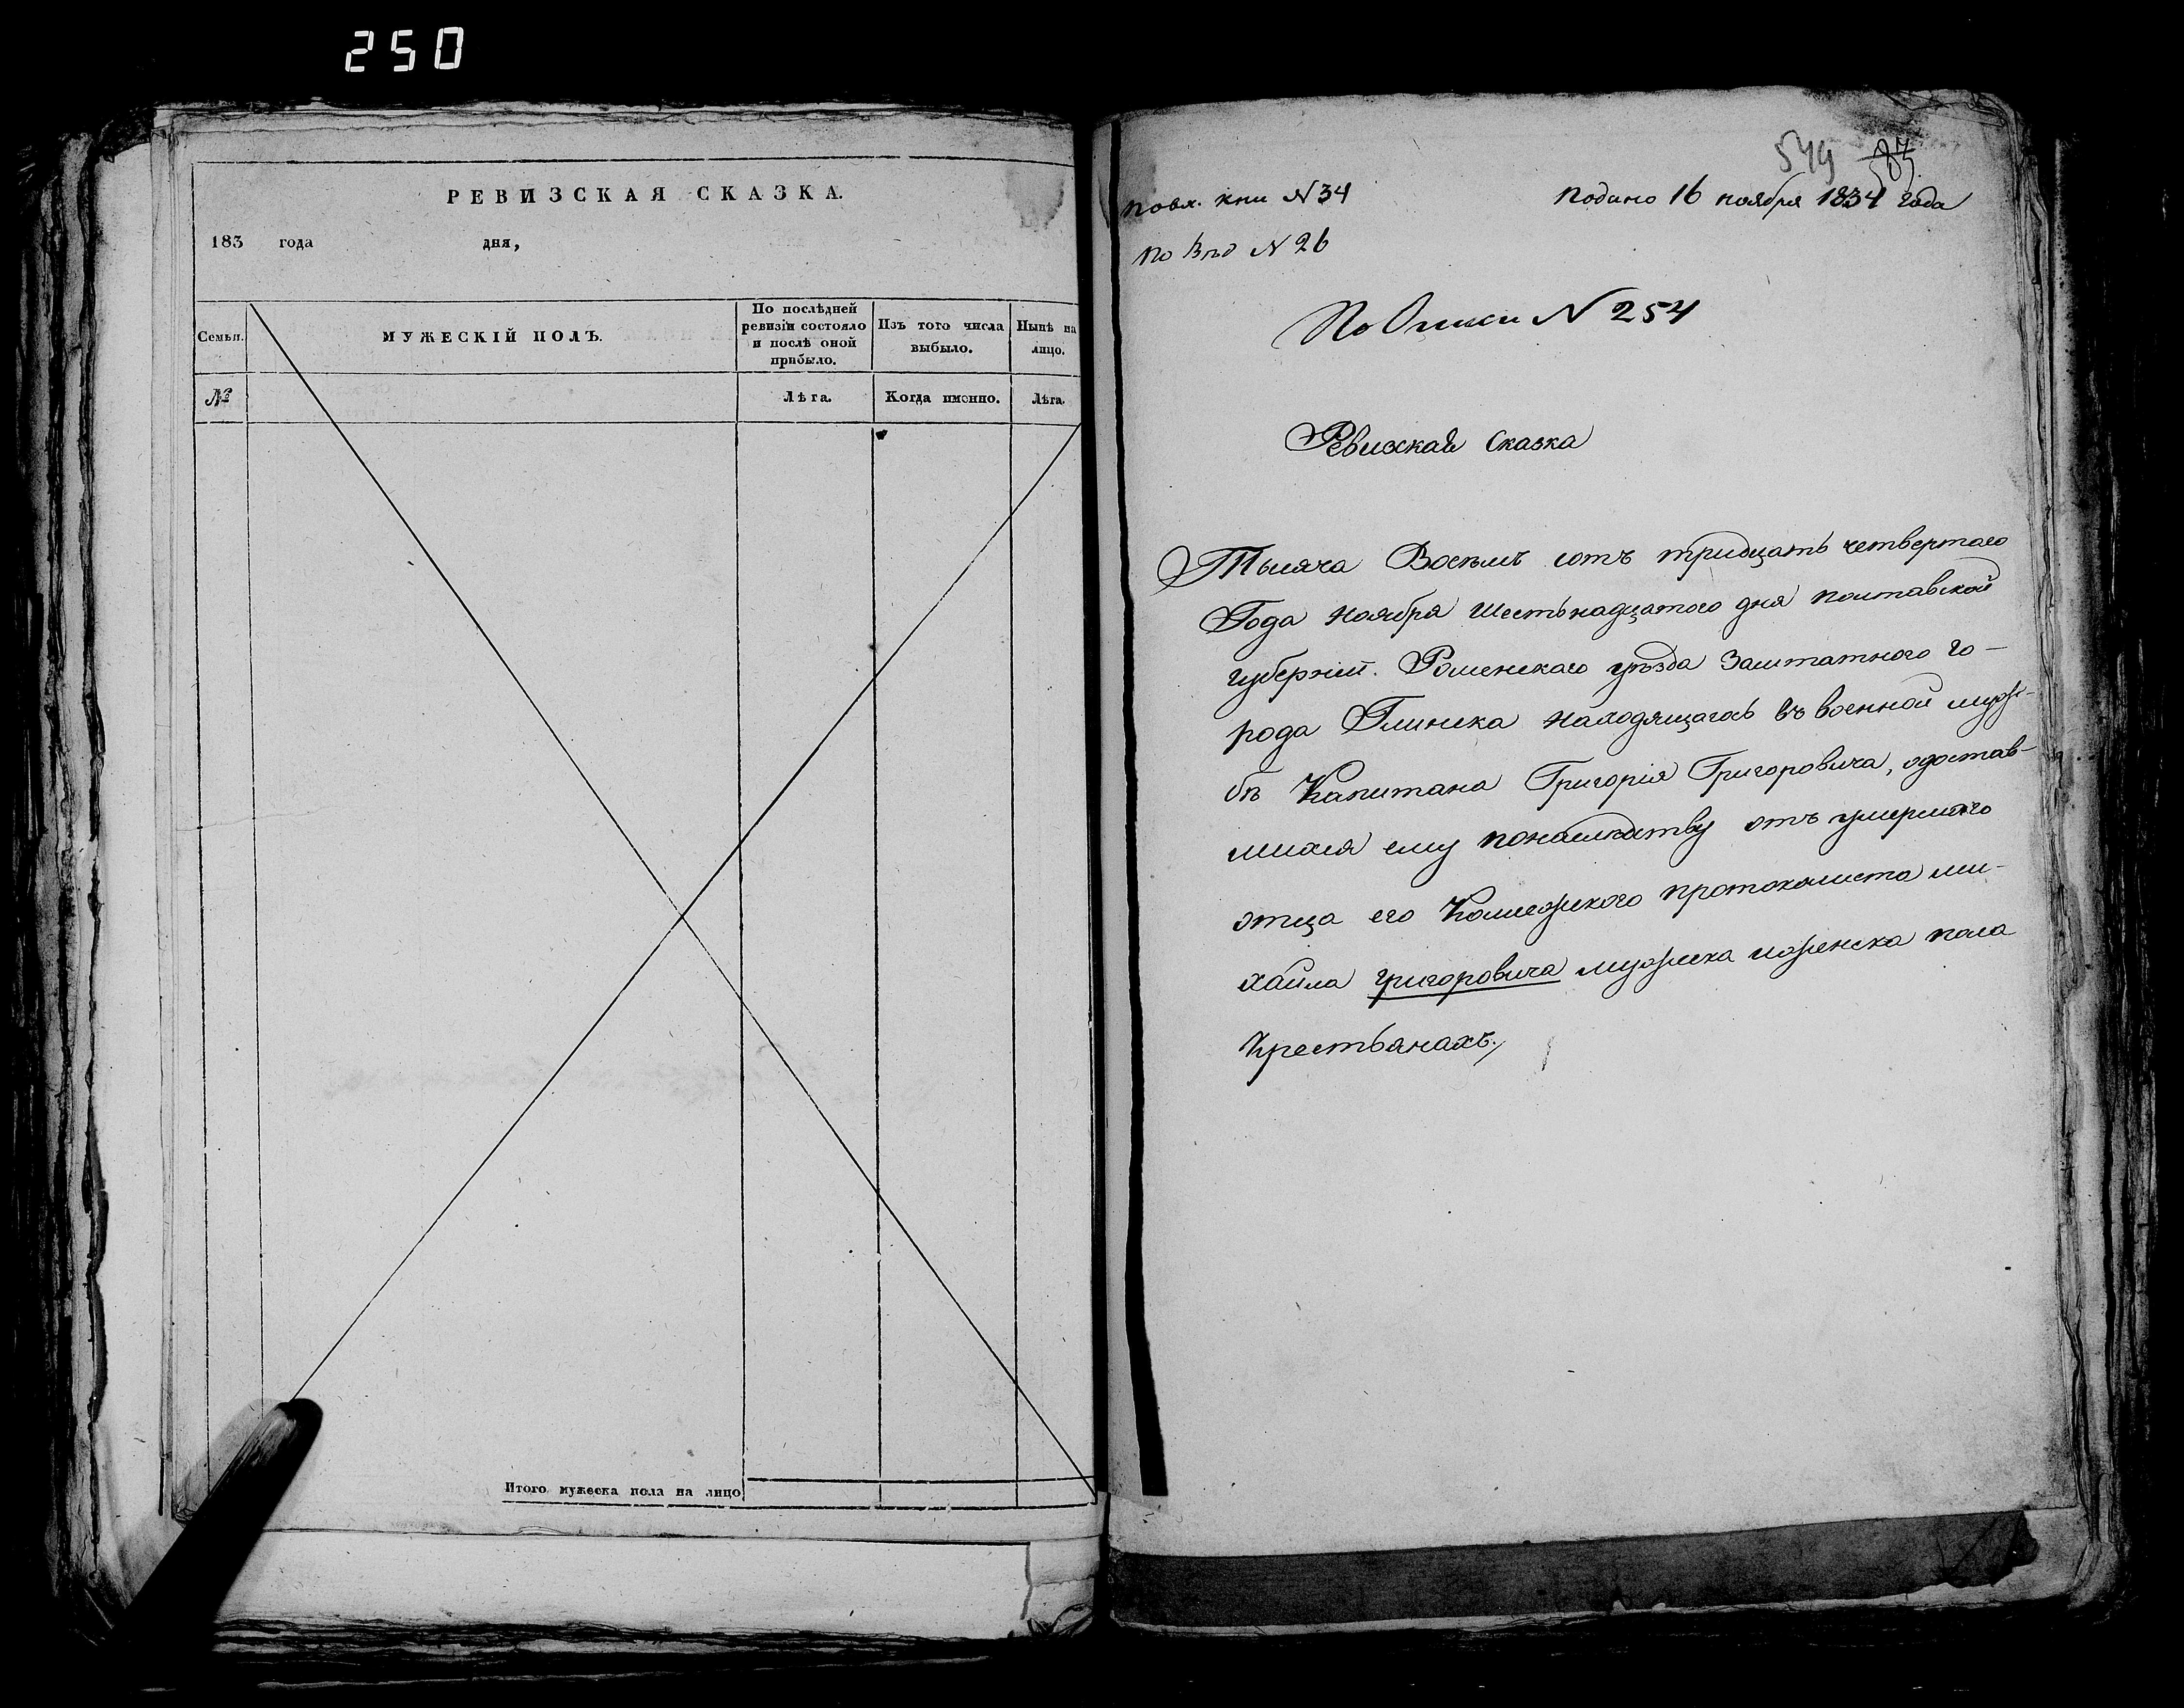 250
РЕВИЗСКАЯ СКАЗКА.
183 года дня,
Семьи.
МУЖЕСКІЙ ПОЛЪ.
По послѣдней ревизіи состояло и послѣ оной прибыло.
Изъ того числа выбыло.
Нынѣ на лицо.
№
Лѣта.
Когда именно.
Лѣта.
Итого мужеска пола на лицо
549
По вх. кни N 34
Подано 16 ноября 1834 года
По Вѣд N 26
По Описи N 254
Ревизкая Сказка
Тысяча Восемь сотъ тридцать четвертого
Года Ноября Шестьнадцатого дня полтавской
губерніи. Роменскаго уѣзда Заштатного го-
рода Глинска Находящагось въ военной служ-
бѣ Капитана Григорія Григоровича, одостав-
шихся ему понаследству отъ умершаго
отца его Колежского протоколиста ми-
хаила григоровича мужеска иженска пола
Крестьянахъ.